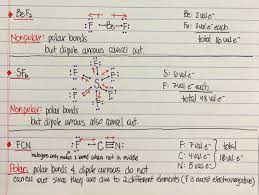 BeF2
:F — Be — F:
Be: 2 val e-
F2: 7 val e- each
total 16 val e-
Nonpolar: polar bonds
but dipole arrows cancel out.
SF6
F
F F
S
F F
F
S: 6 val e-
F: 7 val e- each
total 48 val e-
Nonpolar: polar bonds
but dipole arrows also cancel out.
FCN
:F — C ≡ N:
F: 7 val e-
C: 4 val e-
N: 5 val e-
total
16 val e-
halogens only makes 1 bond when not in middle
Polar: polar bonds & dipole arrows do not
cancel out since they are due to 2 different elements (F is most electronegative)